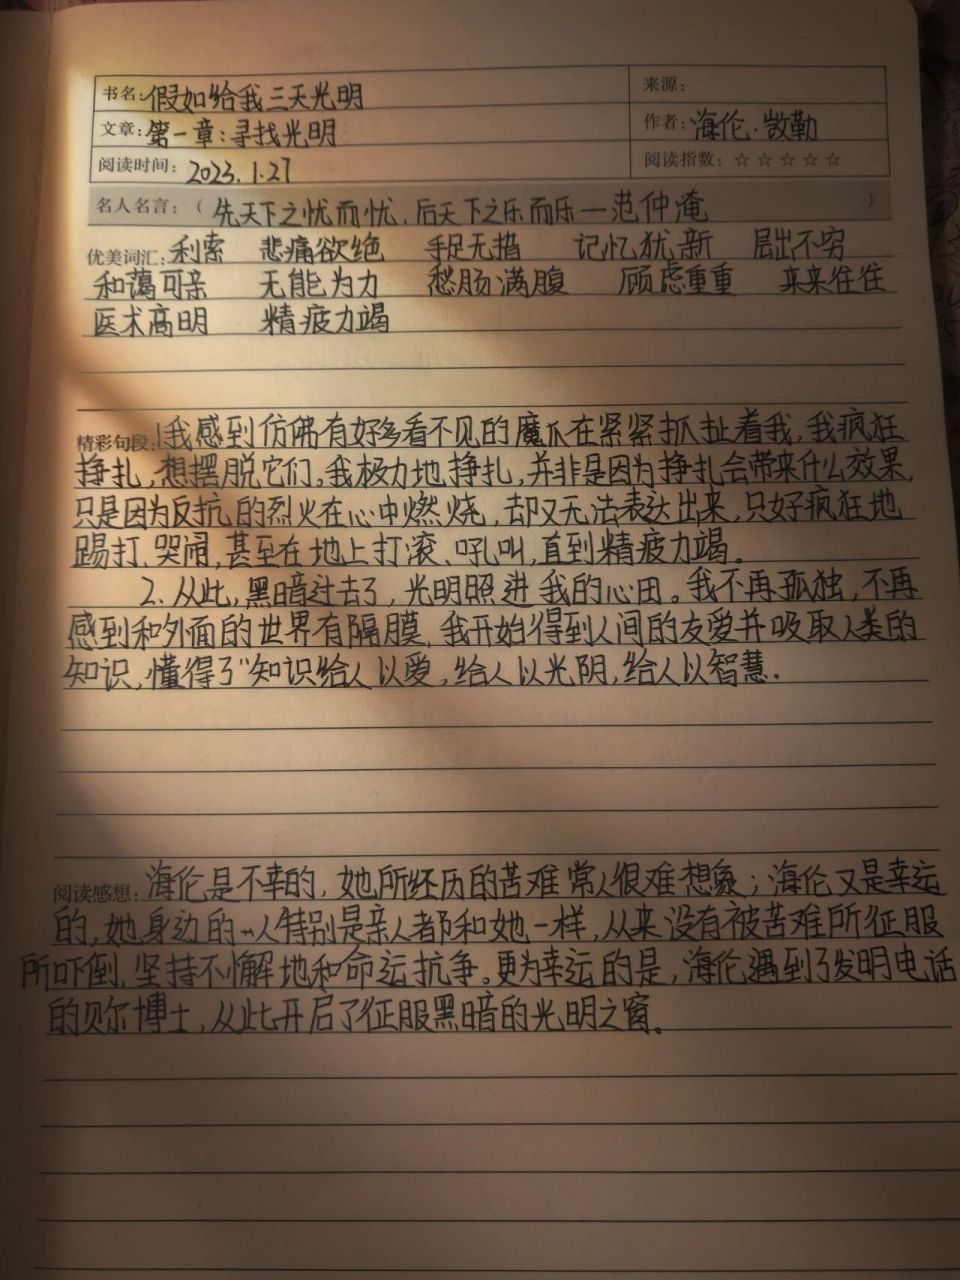 书名：假如给我三天光明
来源：
文章：第一章：寻找光明
作者：海伦·凯勒
阅读时间：2023.1.27
阅读指数：☆☆☆☆☆
名人名言：（先天下之忧而忧、后天下之乐而乐—范仲淹）
优美词汇：利索 悲痛欲绝 手足无措 记忆犹新 层出不穷
和蔼可亲 无能为力 愁肠满腹 顾虑重重 来来往往
医术高明 精疲力竭
精彩句段：1我感到仿佛有好多看不见的魔爪在紧紧抓扯着我，我疯狂
挣扎，想摆脱它们。我极力地挣扎，并非是因为挣扎会带来什么效果，
只是因为反抗的烈火在心中燃烧，却又无法表达出来，只好疯狂地
踢打、哭闹，甚至在地上打滚、吼叫，直到精疲力竭。
2.从此，黑暗过去了，光明照进我的心田。我不再孤独，不再
感到和外面的世界有隔膜，我开始得到人间的友爱并吸取人类的
知识，懂得了“知识给人以爱，给人以光阴，给人以智慧.
阅读感想：海伦是不幸的，她所经历的苦难常人很难想象；海伦又是幸运
的，她身边的人特别是亲人都和她一样，从来没有被苦难所征服
所吓倒，坚持不懈地和命运抗争。更为幸运的是，海伦遇到了发明电话
的贝尔博士，从此开启了征服黑暗的光明之窗。